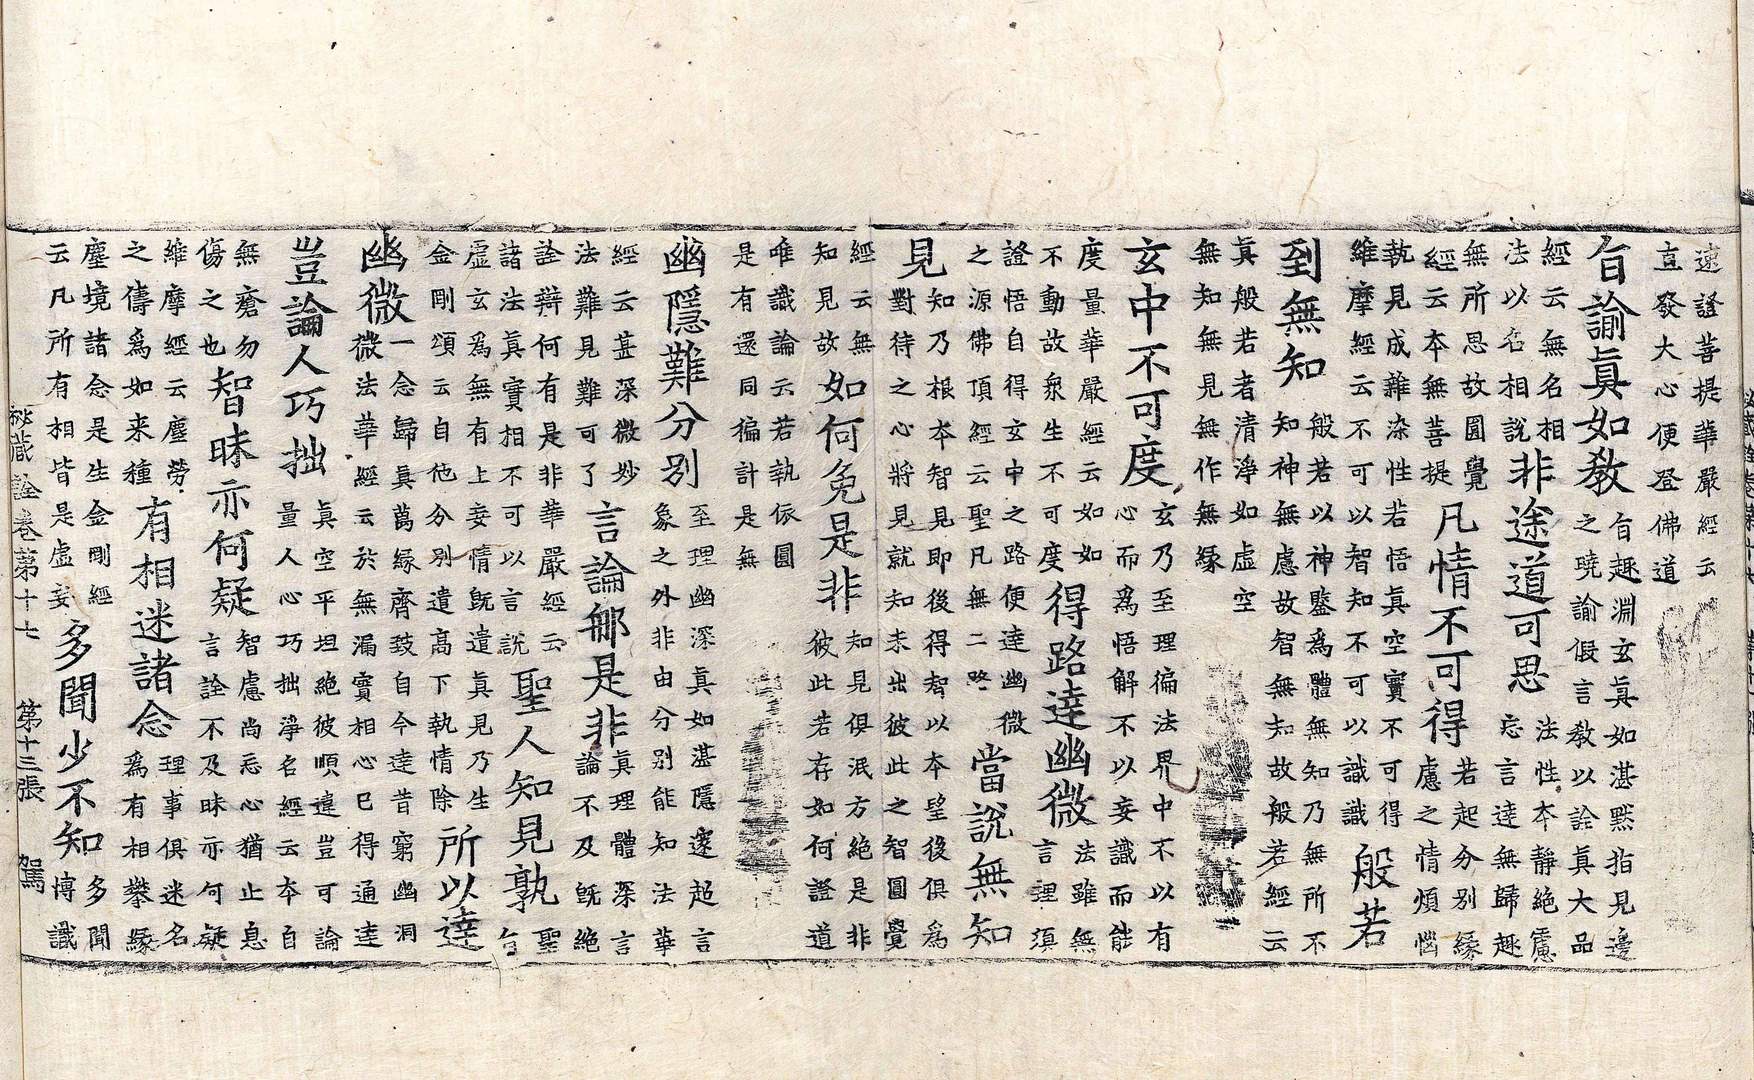 速證菩提華嚴經云
直發大心便登佛道
旨諭眞如教
旨趣淵玄眞如湛默指見邊
之曉諭假言教以詮眞大品
經云無名相
法以名相說
非途道可思
法性本靜絕慮
忘言達無歸趣
無所思故圓覺
經云本無菩提
凡情不可得
若起分別緣
慮之情煩惱
執見成雜染性若悟眞空實不可得
維摩經云不可以智知不可以識識
般若
到無知
般若以神鑒爲體無知乃無所不
知神無慮故智無知故般若經云
眞般若者清淨如虛空
無知無見無作無緣
玄中不可度
玄乃至理徧法界中不以有
心而爲悟解不以妄識而能
度量華嚴經云如如
不動故衆生不可度
得路達幽微
法雖無
言理須
證悟自得玄中之路便達幽微
之源佛頂經云聖凡無二路
當說無知
見
知乃根本智見即後得智以本望後俱爲
對待之心將見就知未出彼此之智圓覺
經云無
知見故
如何免是非
知見俱泯方絕是非
彼此若存如何證道
唯識論云若執依圓
是有還同徧計是無
幽隱難分別
至理幽深眞如湛隱邃超言
象之外非由分別能知法華
經云甚深微妙
法難見難可了
言論郍是非
眞理體深言
論不及旣絕
詮辯何有是非華嚴經云
諸法眞實相不可以言說
聖人知見孰
聖
旨
虛玄爲無有上妄情旣遣眞見乃生
金剛頌云自他分別遣高下執情除
所以達
幽微
一念歸眞萬緣齊致自今達昔窮幽洞
微法華經云於無漏實相心已得通達
豈論人巧拙
眞空平坦絕彼順違豈可論
量人心巧拙淨名經云本自
無瘡勿
傷之也
智昧亦何疑
智慮尚忘心猶止息
言詮不及昧亦何疑
維摩經云塵勞
之儔爲如来種
有相迷諸念
理事俱迷名
爲有相攀緣
塵境諸念是生金剛經
云凡所有相皆是虛妄
多聞少不知
多聞
博識
秘藏詮卷第十七 第十三張 駕